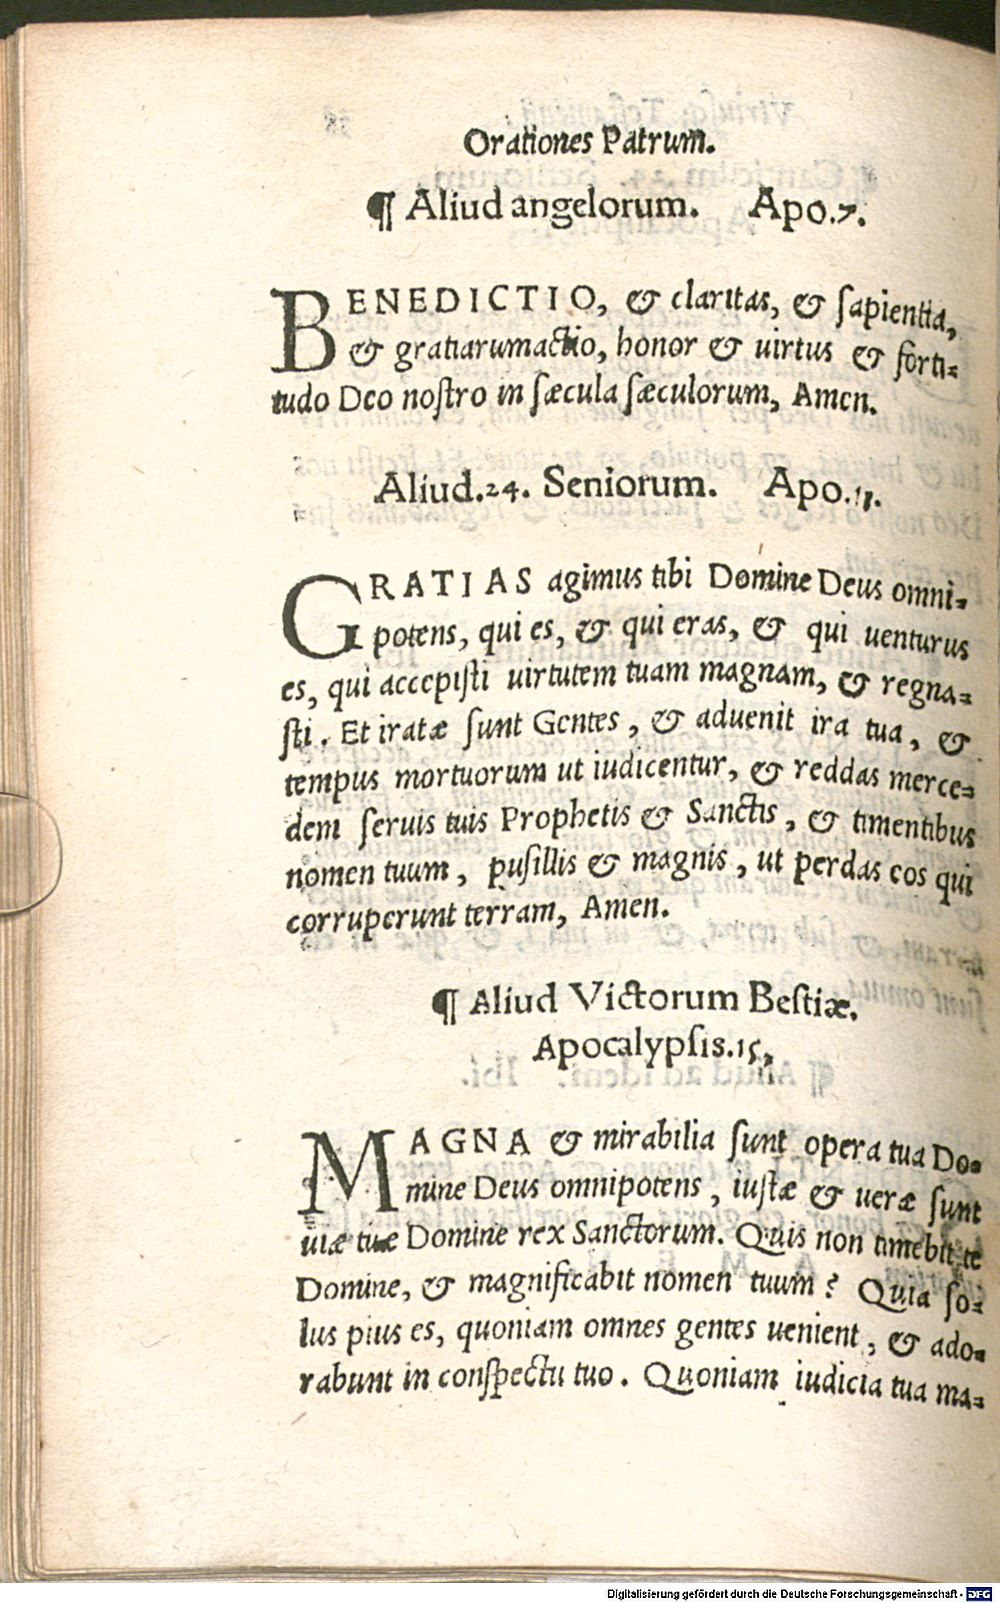 Orationes Patrum.
¶ Aliud angelorum. Apo.7.
BENEDICTIO, & claritas, & ſapientia,
& gratiarumactio, honor & uirtus & forti-
tudo Deo noſtro in ſæcula ſæculorum, Amen.
Aliud.24. Seniorum. Apo.11.
GRATIAS agimus tibi Domine Deus omni-
potens, qui es, & qui eras, & qui uenturus
es, qui accepiſti uirtutem tuam magnam, & regna-
ſti. Et iratæ ſunt Gentes, & aduenit ira tua, &
tempus mortuorum ut iudicentur, & reddas merce-
dem ſeruis tuis Prophetis & Sanctis, & timentibus
nomen tuum, puſillis & magnis, ut perdas eos qui
corruperunt terram, Amen.
¶ Aliud Victorum Beſtiæ.
Apocalypſis.15,
MAGNA & mirabilia ſunt opera tua Do-
mine Deus omnipotens, iuſtæ & ueræ ſunt
uiæ tuæ Domine rex Sanctorum. Quis non timebit te
Domine, & magnificabit nomen tuum? Quia ſo-
lus pius es, quoniam omnes gentes uenient, & ado-
rabunt in conſpectu tuo. Quoniam iudicia tua ma-
Digitalisierung gefördert durch die Deutsche Forschungsgemeinschaft - DFG